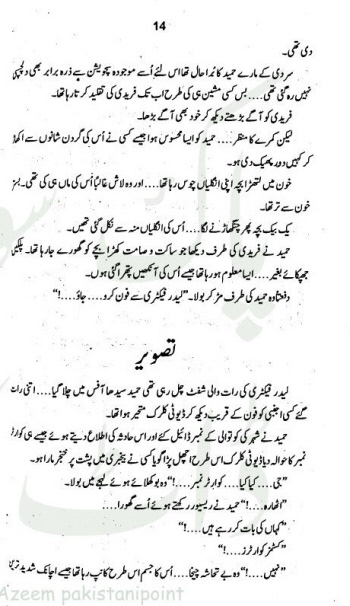 14
دی تھی۔
سردی کے مارے حمید کا بُرا حال تھا اس لئے اُسے موجودہ سچویشن سے ذرہ برابر بھی دلچسپی
نہیں رہ گئی تھی.... بس کسی مشین ہی کی طرح اب تک فریدی کی تقلید کرتا رہا تھا۔
فریدی کو آگے بڑھتے دیکھ کر خود بھی آگے بڑھا۔
لیکن کمرے کا منظر.... حمید کو ایسا محسوس ہوا جیسے کسی نے اُس کی گردن شانوں سے اکھاڑ
کر کہیں دور پھینک دی ہو۔
خون میں لتھڑا بچہ اپنی انگلیاں چوس رہا تھا.... اور وہ لاش غالباً اُس کی ماں ہی کی تھی۔ بستر
خون سے تر تھا۔
یک بیک بچہ پھر چنگھاڑنے لگا.... اُس کی انگلیاں منہ سے نکل گئی تھیں۔
حمید نے فریدی کی طرف دیکھا جو ساکت و صامت کھڑا بچے کو گھورے جا رہا تھا۔ پلکیں
جھپکائے بغیر.... ایسا معلوم ہو رہا تھا جیسے اُس کی آنکھیں پتھرا گئی ہوں۔
دفعتاً وہ حمید کی طرف مڑ کر بولا۔ ”لیدر فیکٹری سے فون کرو.... جاؤ....!“
تصویر
لیدر فیکٹری کی رات والی شفٹ چل رہی تھی حمید سیدھا آفس میں چلا گیا.... اتنی رات
گئے کسی اجنبی کو فون کے قریب دیکھ کر ڈیوٹی کلرک متحیر ہوا تھا۔
حمید نے شہر کی کوتوالی کے نمبر ڈائیل کئے اور اس حادثہ کی اطلاع دیتے ہوئے جیسے ہی کوارٹر
نمبر کا حوالہ دیا ڈیوٹی کلرک اس طرح اچھل پڑا گویا کسی نے بیخبری میں پشت پر خنجر مارا ہو۔
”جی.... کیا کیا.... کوارٹر نمبر....!“ وہ بوکھلائے ہوئے لہجے میں بولا۔
”اٹھارہ....!“ حمید نے ریسیور رکھتے ہوئے اُسے گھورا....
”کہاں کی بات کر رہے ہیں....!“
”کسٹمز کوارٹرز....!“
”نہیں....!“ وہ بے تحاشہ چیخا.... اُس کا جسم اس طرح کانپ رہا تھا جیسے اچانک شدید ترین
Azeem pakistanipoint